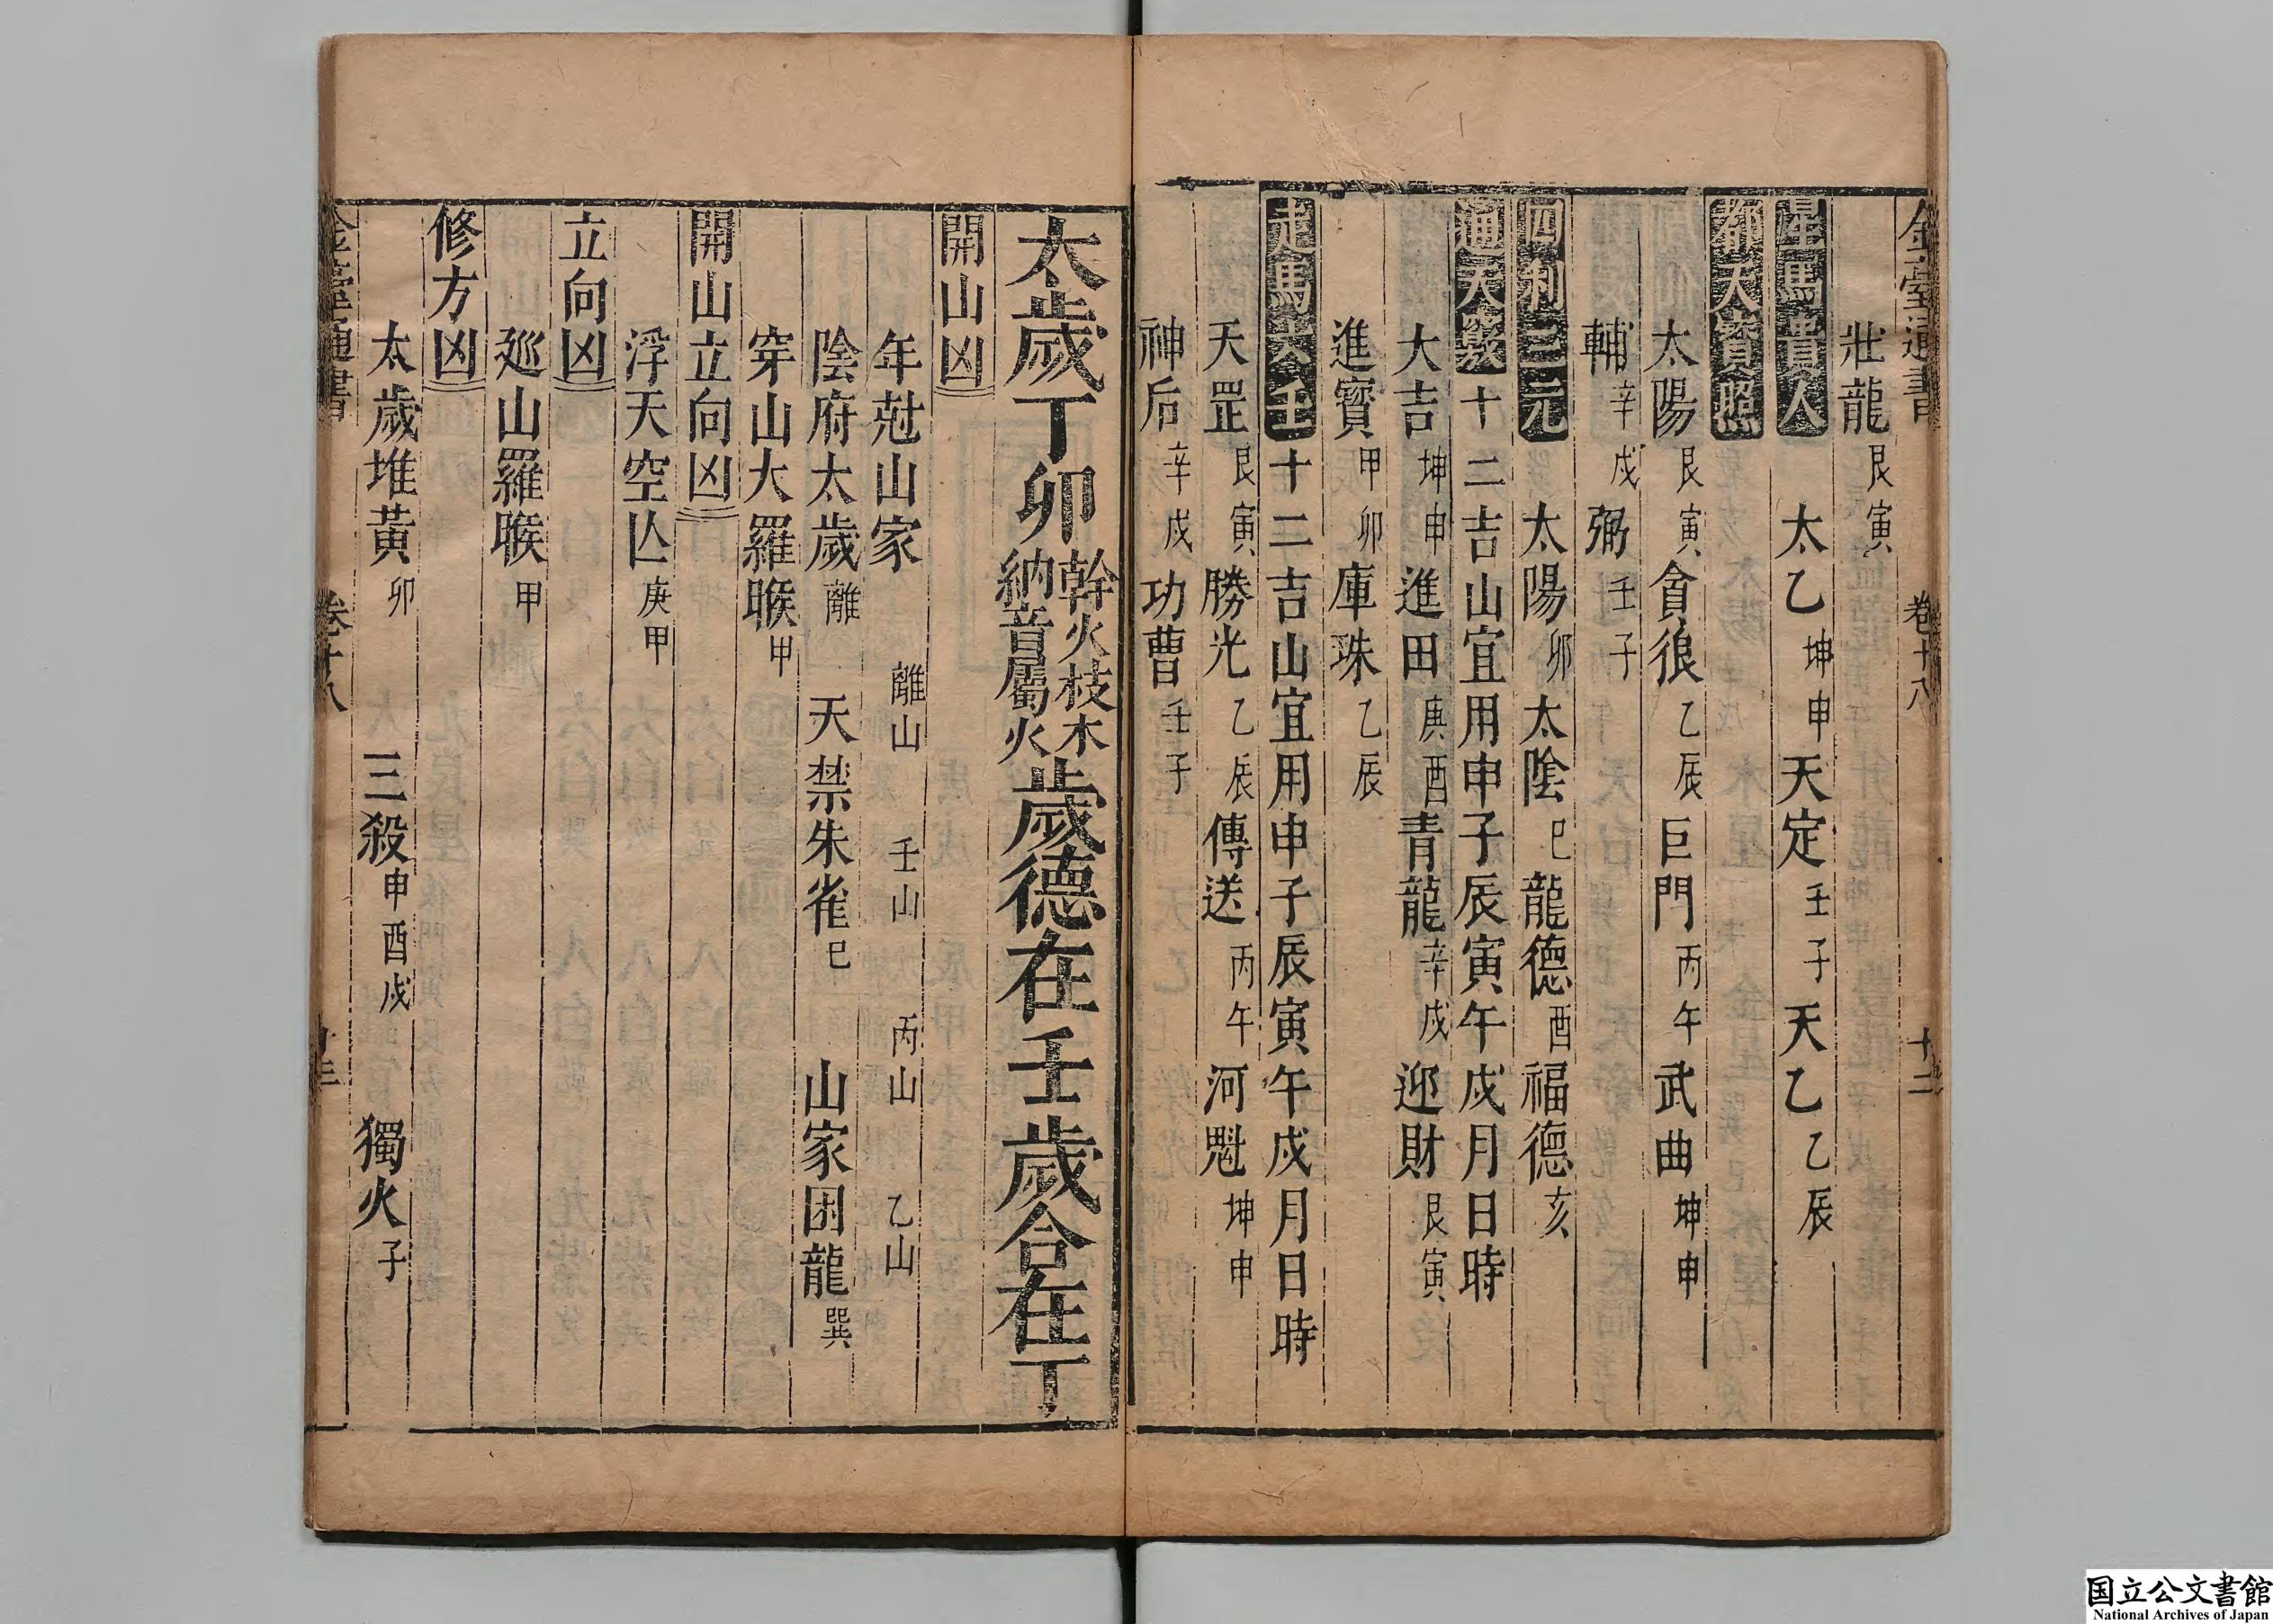 金臺通書 卷十八 十二
壯龍艮寅
星馬貴人 太乙坤申 天定壬子 天乙乙辰
都天寶照
太陽艮寅 貪狼乙辰 巨門丙午 武曲坤申
輔辛戌 弼壬子
四利三元 太陽卯 太陰巳 龍德酉 福德亥
通天竅 十二吉山宜用申子辰寅午戌月日時
大吉坤申 進田庚酉 青龍辛戌 迎財艮寅
進寶甲卯 庫珠乙辰
走馬六壬 十二吉山宜用申子辰寅午戌月日時
天罡艮寅 勝光乙辰 傳送丙午 河魁坤申
神后辛戌 功曹壬子
太歲丁卯 幹火枝木 納音屬火 歲德在壬歲合在丁
開山凶
年尅山家 離山 壬山 丙山 乙山
陰府太歲離 天禁朱雀巳 山家困龍巽
穿山大羅睺甲
開山立向凶
浮天空亾庚甲
立向凶
廵山羅睺甲
修方凶
太歲堆黃卯 三殺申酉戌 獨火子
金臺通書 卷十八
国立公文書館
National Archives of Japan